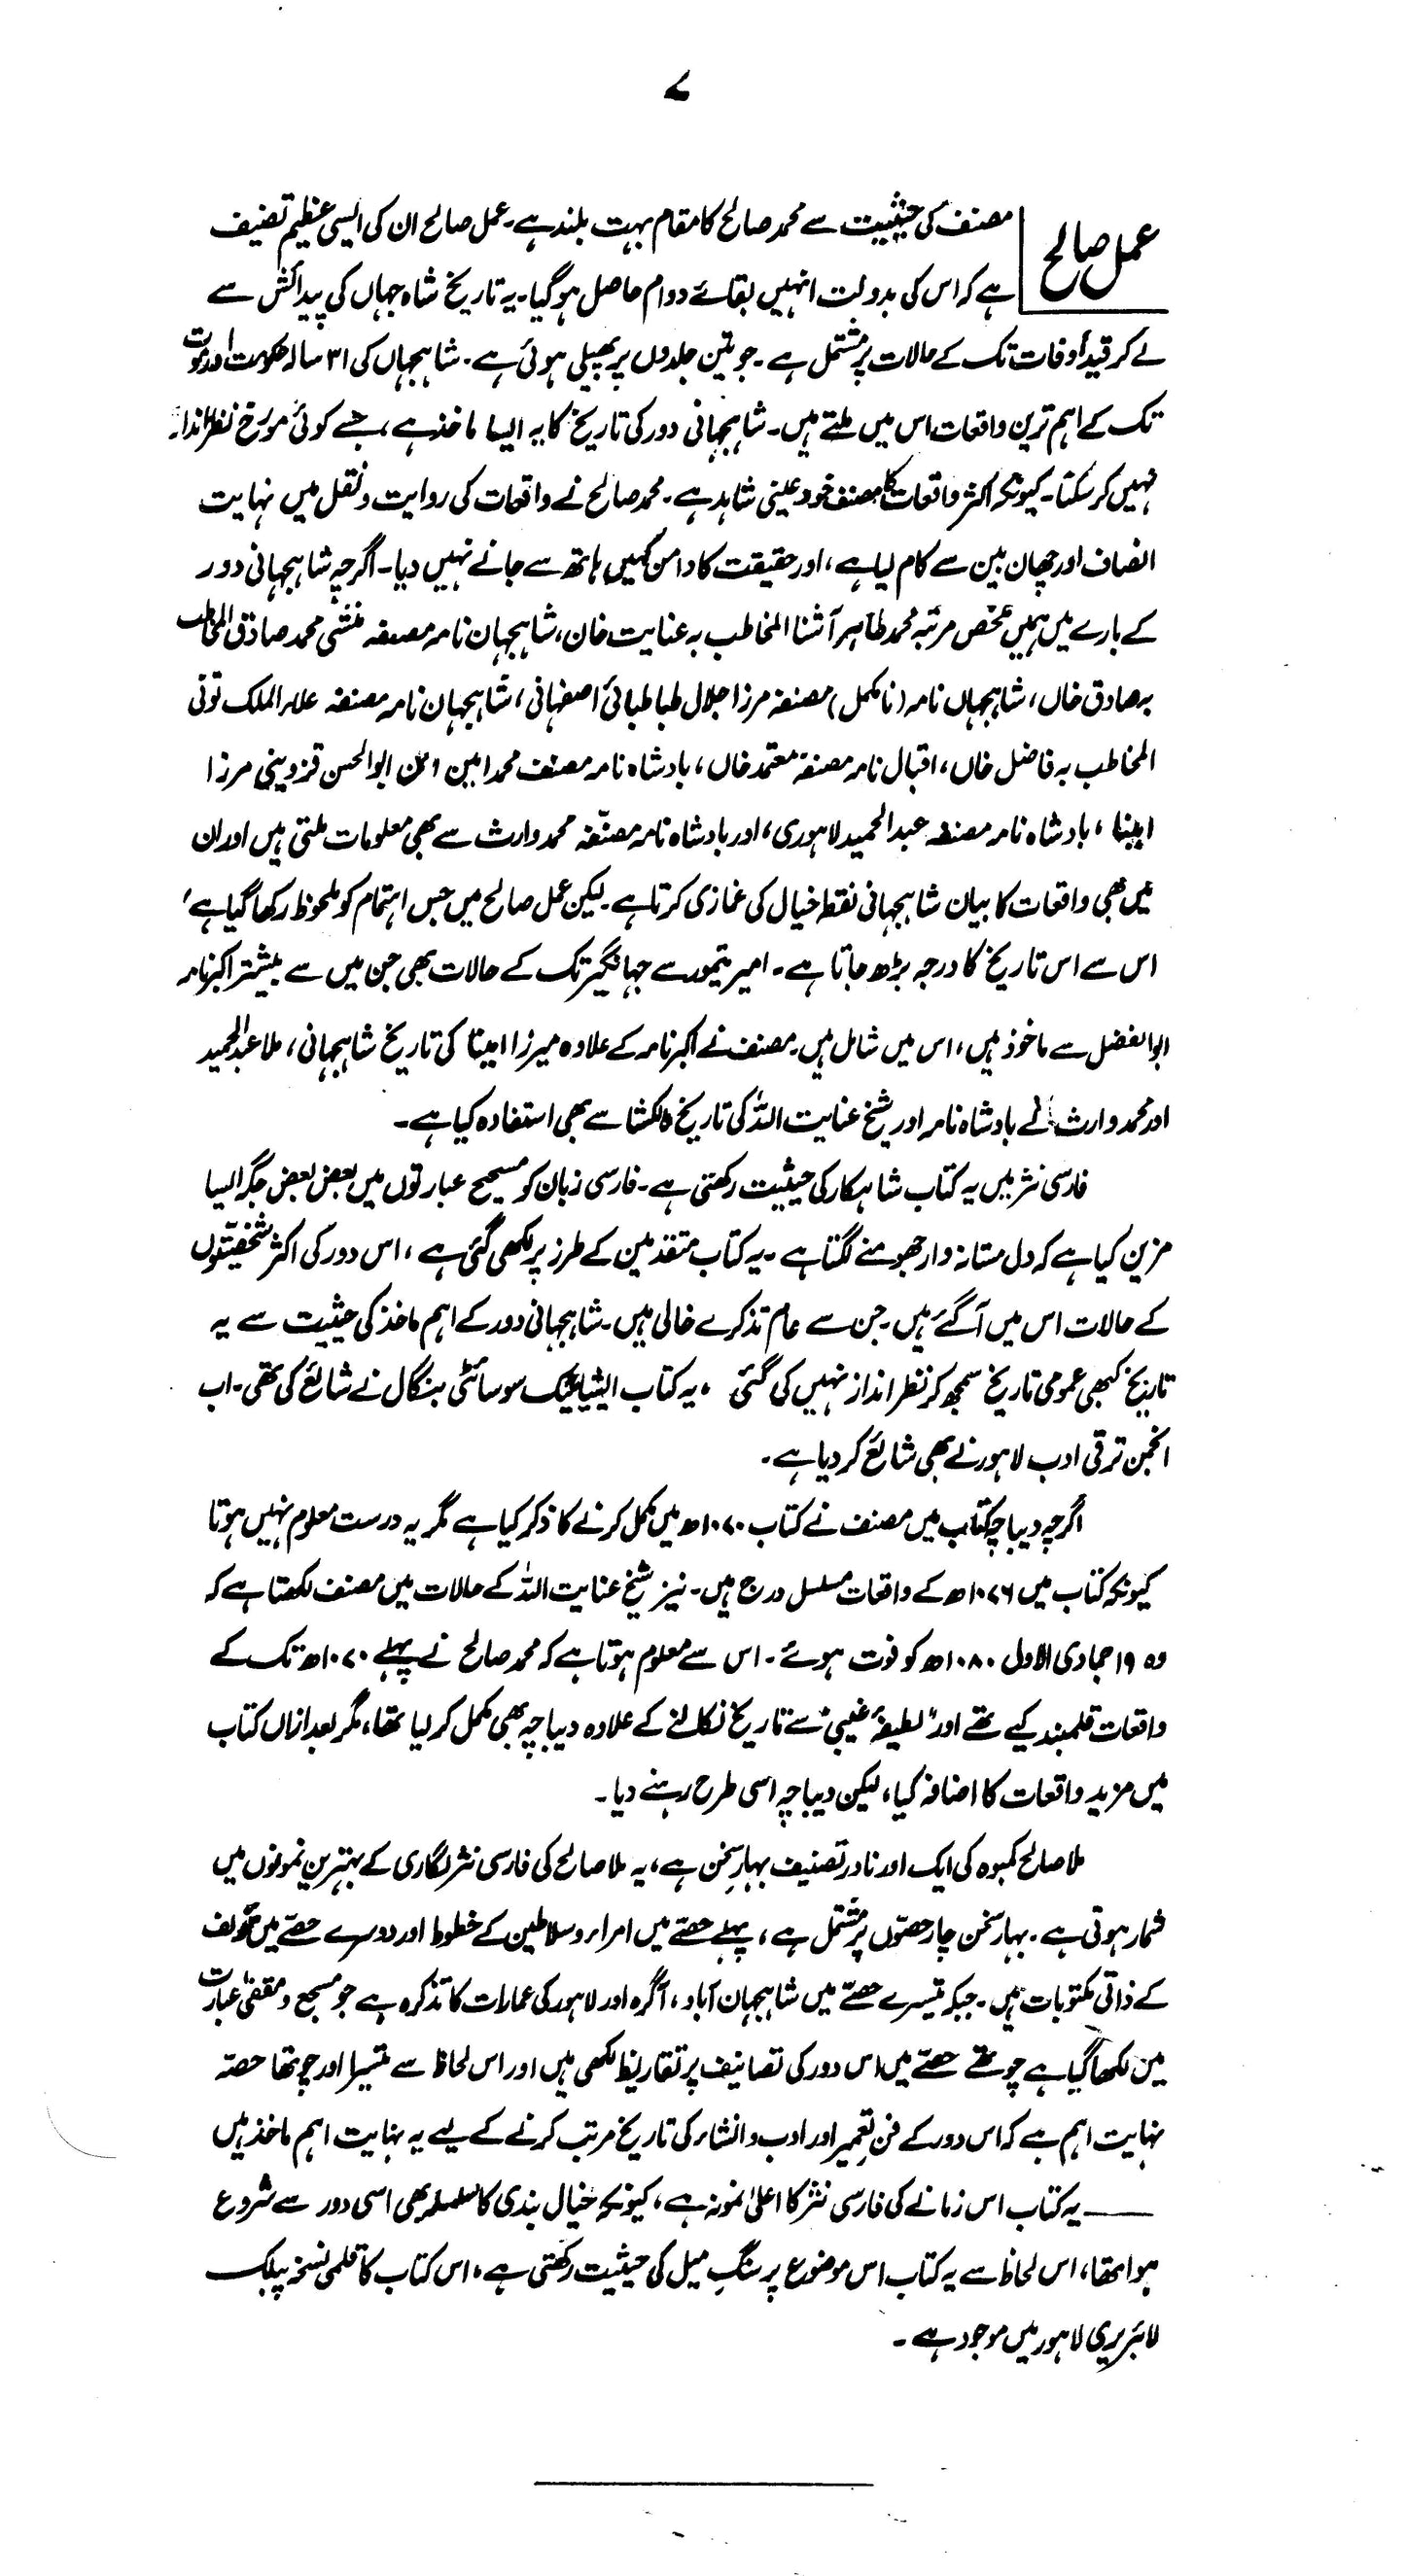 ۷
عمل صالح
مصنف کی حیثیت سے محمد صالح کا مقام بہت بلند ہے۔ عمل صالح ان کی ایسی عظیم تصنیف
ہے کہ اس کی بدولت انہیں بقائے دوام حاصل ہو گیا۔ یہ تاریخ شاہ جہاں کی پیدائش سے
لے کر قید اوفات تک کے حالات پر مشتمل ہے۔ جو تین جلدوں پر پھیلی ہوئی ہے۔ شاہجہاں کی ۳۱ سالہ حکومت اور موت
تک کے اہم ترین واقعات اس میں ملتے ہیں۔ شاہجہانی دور کی تاریخ کا یہ ایسا ماخذ ہے، جسے کوئی مورخ نظر انداز
نہیں کر سکتا۔ کیونکہ اکثر واقعات کا مصنف خود عینی شاہد ہے۔ محمد صالح نے واقعات کی روایت و نقل میں نہایت
انصاف اور چھان بین سے کام لیا ہے، اور حقیقت کا دامن کہیں ہاتھ سے جانے نہیں دیا۔ اگرچہ شاہجہانی دور
کے بارے میں ہمیں ملخص مرتبہ محمد طاہر آشنا المخاطب بہ عنایت خان، شاہجہان نامہ مصنفہ منشی محمد صادق المخاطب
بہ صادق خاں، شاہجہاں نامہ (نامکمل) مصنفہ مرزا جلال طباطبائی اصفہانی، شاہجہان نامہ مصنفہ علاء الملک تونی
المخاطب بہ فاضل خاں، اقبال نامہ مصنفہ معتمد خاں، بادشاہ نامہ مصنف محمد امین ابن ابوالحسن قزوینی مرزا
امینا، بادشاہ نامہ مصنفہ عبدالحمید لاہوری، اور بادشاہ نامہ مصنّفہ محمد وارث سے بھی معلومات ملتی ہیں اور ان
میں بھی واقعات کا بیان شاہجہانی نقطہ خیال کی غمازی کرتا ہے۔ لیکن عمل صالح میں جس اہتمام کو ملحوظ رکھا گیا ہے،
اس سے اس تاریخ کا درجہ بڑھ جاتا ہے۔ امیر تیمور سے جہانگیر تک کے حالات بھی جن میں سے بیشتر اکبرنامہ
ابوالفضل سے ماخوذ ہیں، اس میں شامل ہیں۔ مصنف نے اکبرنامہ کے علاوہ میرزا امینا کی تاریخ شاہجہانی، ملا عبدالحمید
اور محمد وارث کے بادشاہ نامہ اور شیخ عنایت اللہ کی تاریخ دلکشا سے بھی استفادہ کیا ہے۔
فارسی نثر میں یہ کتاب شاہکار کی حیثیت رکھتی ہے۔ فارسی زبان کو مسجع عبارتوں میں بعض بعض جگہ ایسا
مزین کیا ہے کہ دل مستانہ وار جھومنے لگتا ہے۔ یہ کتاب متقدمین کے طرز پر لکھی گئی ہے، اس دور کی اکثر شخصیّتوں
کے حالات اس میں آگئے ہیں۔ جن سے عام تذکرے خالی ہیں۔ شاہجہانی دور کے اہم ماخذ کی حیثیت سے یہ
تاریخ کبھی عمومی تاریخ سمجھ کر نظر انداز نہیں کی گئی۔ یہ کتاب ایشیاٹیک سوسائٹی بنگال نے شائع کی تھی۔ اب
انجمن ترقی ادب لاہور نے بھی شائع کر دیا ہے۔
اگرچہ دیباچہ کتاب میں مصنف نے کتاب ۱۰۷۰ھ میں مکمل کرنے کا ذکر کیا ہے مگر یہ درست معلوم نہیں ہوتا
کیونکہ کتاب میں ۱۰۷۶ھ کے واقعات مسلسل درج ہیں۔ نیز شیخ عنایت اللہ کے حالات میں مصنف لکھتا ہے کہ
وہ ۱۹ جمادی الاول ۱۰۸۰ھ کو فوت ہوئے۔ اس سے معلوم ہوتا ہے کہ محمد صالح نے پہلے ۱۰۷۰ھ تک کے
واقعات قلمبند کیے تھے اور "لطیفۂ غیبی" سے تاریخ نکالنے کے علاوہ دیباچہ بھی مکمل کر لیا تھا، مگر بعد ازاں کتاب
میں مزید واقعات کا اضافہ کیا، لیکن دیباچہ اسی طرح رہنے دیا۔
ملا صالح کمبوہ کی ایک اور نادر تصنیف بہارِ سخن ہے، یہ ملا صالح کی فارسی نثر نگاری کے بہترین نمونوں میں
شمار ہوتی ہے۔ بہار سخن چار حصّوں پر مشتمل ہے، پہلے حصے میں امراء و سلاطین کے خطوط اور دوسرے حصّے میں مؤلف
کے ذاتی مکتوبات ہیں۔ جبکہ تیسرے حصّے میں شاہجہان آباد، آگرہ اور لاہور کی عمارات کا تذکرہ ہے جو مسجع و مقفیٰ عبارت
میں لکھا گیا ہے چوتھے حصّے میں اس دور کی تصانیف پر تقاریظ لکھی ہیں اور اس لحاظ سے تیسرا اور چوتھا حصّہ
نہایت اہم ہے کہ اس دور کے فنِ تعمیر اور ادب و انشاء کی تاریخ مرتب کرنے کے لیے یہ نہایت اہم ماخذ ہیں
ــــــ یہ کتاب اس زمانے کی فارسی نثر کا اعلیٰ نمونہ ہے، کیونکہ خیال بندی کا سلسلہ بھی اسی دور سے شروع
ہوا تھا، اس لحاظ سے یہ کتاب اس موضوع پر سنگِ میل کی حیثیت رکھتی ہے۔ اس کتاب کا قلمی نسخہ پبلک
لائبریری لاہور میں موجود ہے۔